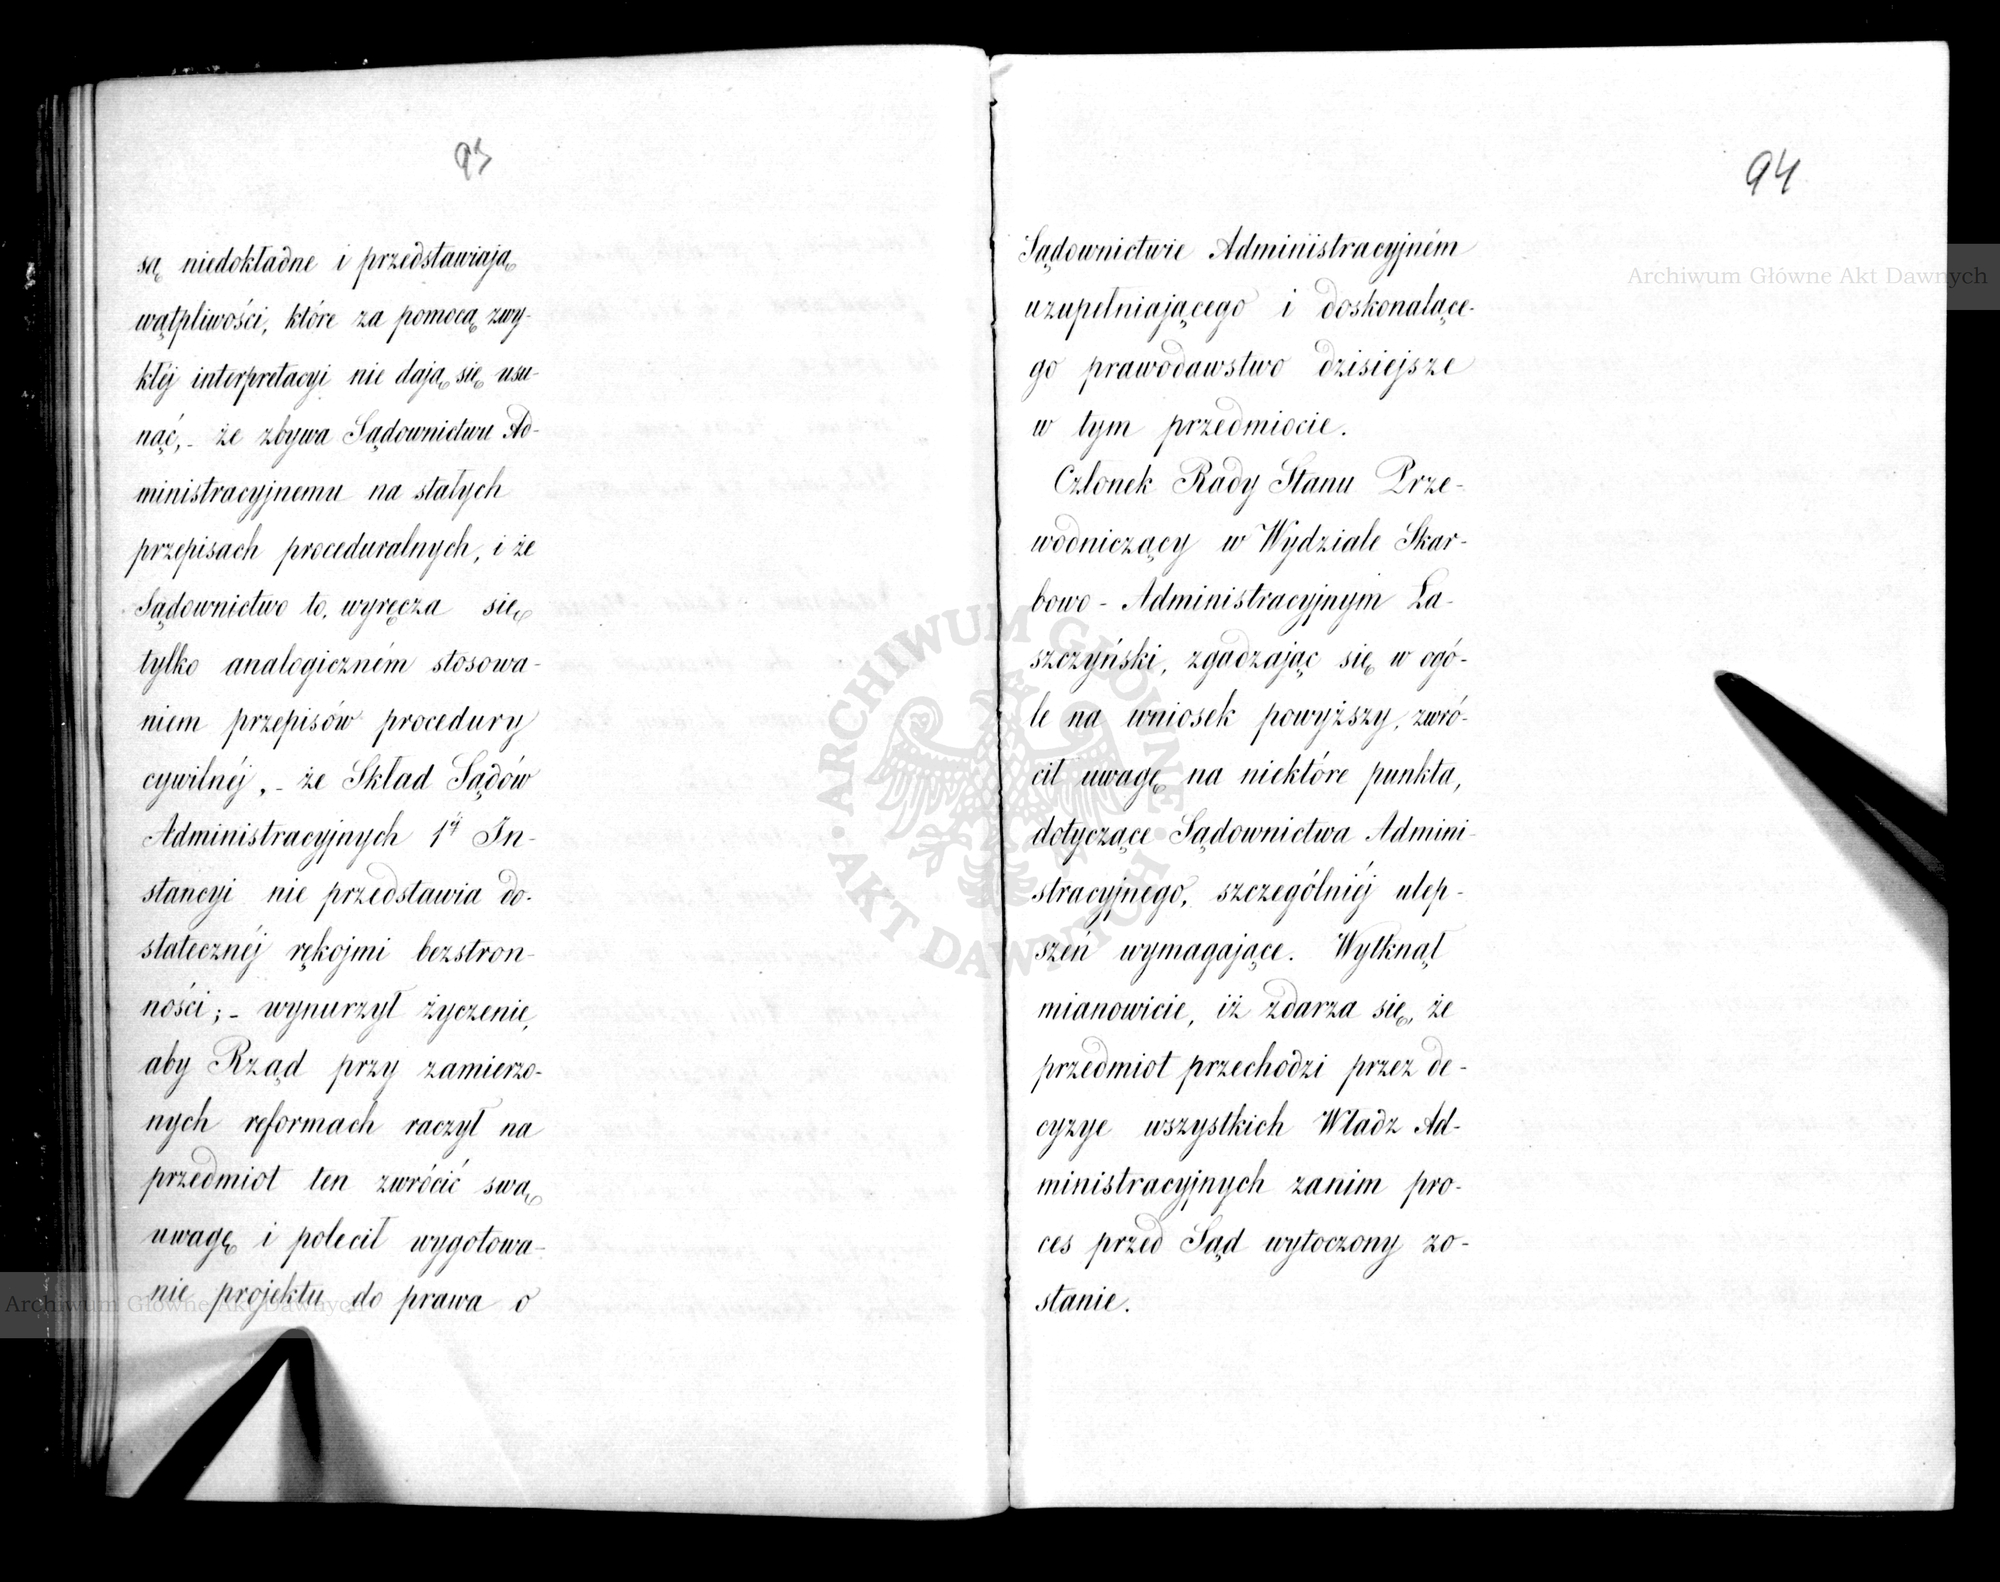 93
są niedokładne i przedstawiają
wątpliwości, które za pomocą zwy-
kłéj interpretacyi nie dają się usu-
nąć, - że zbywa Sądownictwu Ad-
ministracyjnemu na stałych
przepisach proceduralnych, i że
Sądownictwo to, wyręcza się
tylko analogiczném stosowa-
niem przepisów procedury
cywilnéj, - że Skład Sądów
Administracyjnych 1éj In-
stancyi nie przedstawia do-
statecznéj rękojmi bezstron-
ności; - wynurzył życzenie,
aby Rząd przy zamierzo-
nych reformach raczył na
przedmiot ten zwrócić swą
uwagę i polecił wygotowa-
nie projektu do prawa o
94
Sądownictwie Administracyjném
uzupełniającego i doskonalące-
go prawodawstwo dzisiejsze
w tym przedmiocie.
Członek Rady Stanu Prze-
wodniczący w Wydziale Skar-
bowo - Administracyjnym Ła-
szczyński, zgadzając się w ogó-
le na wniosek powyższy, zwró-
cił uwagę na niektóre punkta,
dotyczące Sądownictwa Admini-
stracyjnego, szczególniéj ulep-
szeń wymagające. Wytknął
mianowicie, iż zdarza się, że
przedmiot przechodzi przez de-
cyzye wszystkich Władz Ad-
ministracyjnych zanim pro-
ces przed Sąd wytoczony zo-
stanie.
Archiwum Główne Akt Dawnych
ARCHIWUM GŁÓWNE AKT DAWNYCH
Archiwum Główne Akt Dawnych